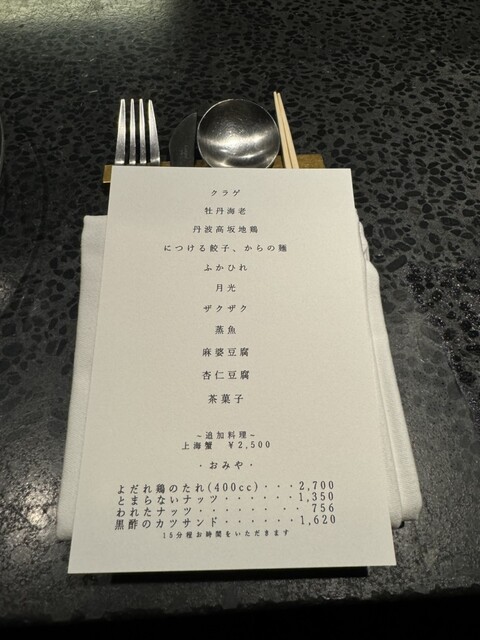 クラゲ
牡丹海老
丹波高坂地鶏
につける餃子、からの麺
ふかひれ
月光
ザクザク
蒸魚
麻婆豆腐
杏仁豆腐
茶菓子
~追加料理~
上海蟹 ¥2,500
・おみや・
よだれ鶏のたれ(400cc)・・・2,700
とまらないナッツ・・・・・・1,350
われたナッツ・・・・・・・・・756
黒酢のカツサンド・・・・・・1,620
15分程お時間をいただきます